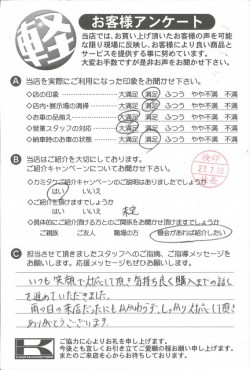 軽
お客様アンケート
当店では、お買い上げ頂いたお客様の声を可能
な限り現場に反映し、お客様により良い商品と
サービスを提供する事に努めています。
大変お手数ですが是非お声をお聞かせ下さい。
A 当店を実際にご利用になった印象をお聞かせ下さい。
◇店の印象 大満足 満足 ふつう やや不満 不満
◇店内・展示場の清掃 大満足 満足 ふつう やや不満 不満
◇お車の品揃え 大満足 満足 ふつう やや不満 不満
◇営業スタッフの対応 大満足 満足 ふつう やや不満 不満
◇納車時のお車の状態 大満足 満足 ふつう やや不満 不満
B 当店はご紹介を大切にしております。
ご紹介キャンペーンについてお聞かせ下さい。
◇カミタケご紹介キャンペーンのご説明はありましたでしょうか
はい いいえ
◇ご紹介を頂けますでしょうか
はい いいえ 未定
◇具体的にご紹介頂ける方とのご関係をお聞かせ頂けますでしょうか
ご親族 ご友人 職場の方 機会があれば紹介したい
C 担当させて頂きましたスタッフへのご指摘、ご指導メッセージを
お願いします。応援メッセージもぜひお願いします。
いつも笑顔で
気持ち良く購入までの話し
を進めていただきました。
雨の日の来店だったにもかかわらず、しっかり
ありがとうございます。
K
ご協力に心よりお礼を申し上げます。
今後とも宜しくお引き立てご愛顧の程お願い申し上げます。
またのご来店を心からお待ちしております。